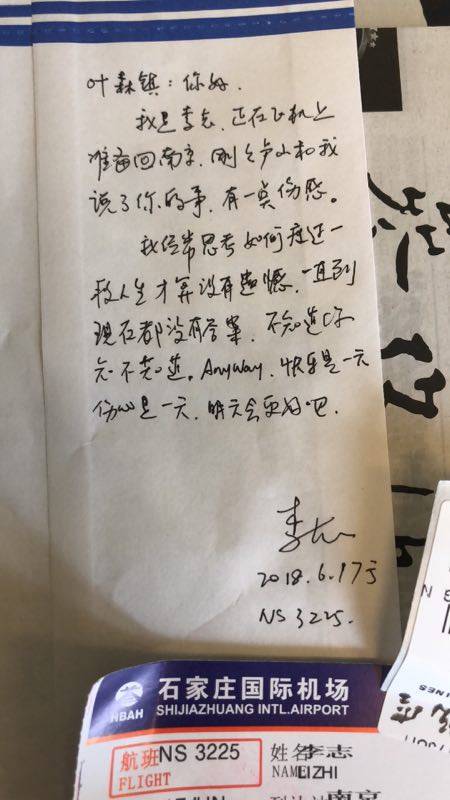 叶森镇：你好．
我是李志，正在飞机上
准备回南京，刚々卢山和我
说了你的事，有一点伤感。
我经常思考如何度过一
段人生才算没有遗憾，一直到
现在都没有答案，不知道你
知不知道。Anyway，快乐是一天
伤心是一天，明天会更好吧．
李志
2018.6.17于
NS 3225.
石家庄国际机场
HBAH
SHIJIAZHUANG INTL.AIRPORT
航班 NS 3225
FLIGHT
姓名 李志
NAME LIZHI
南京